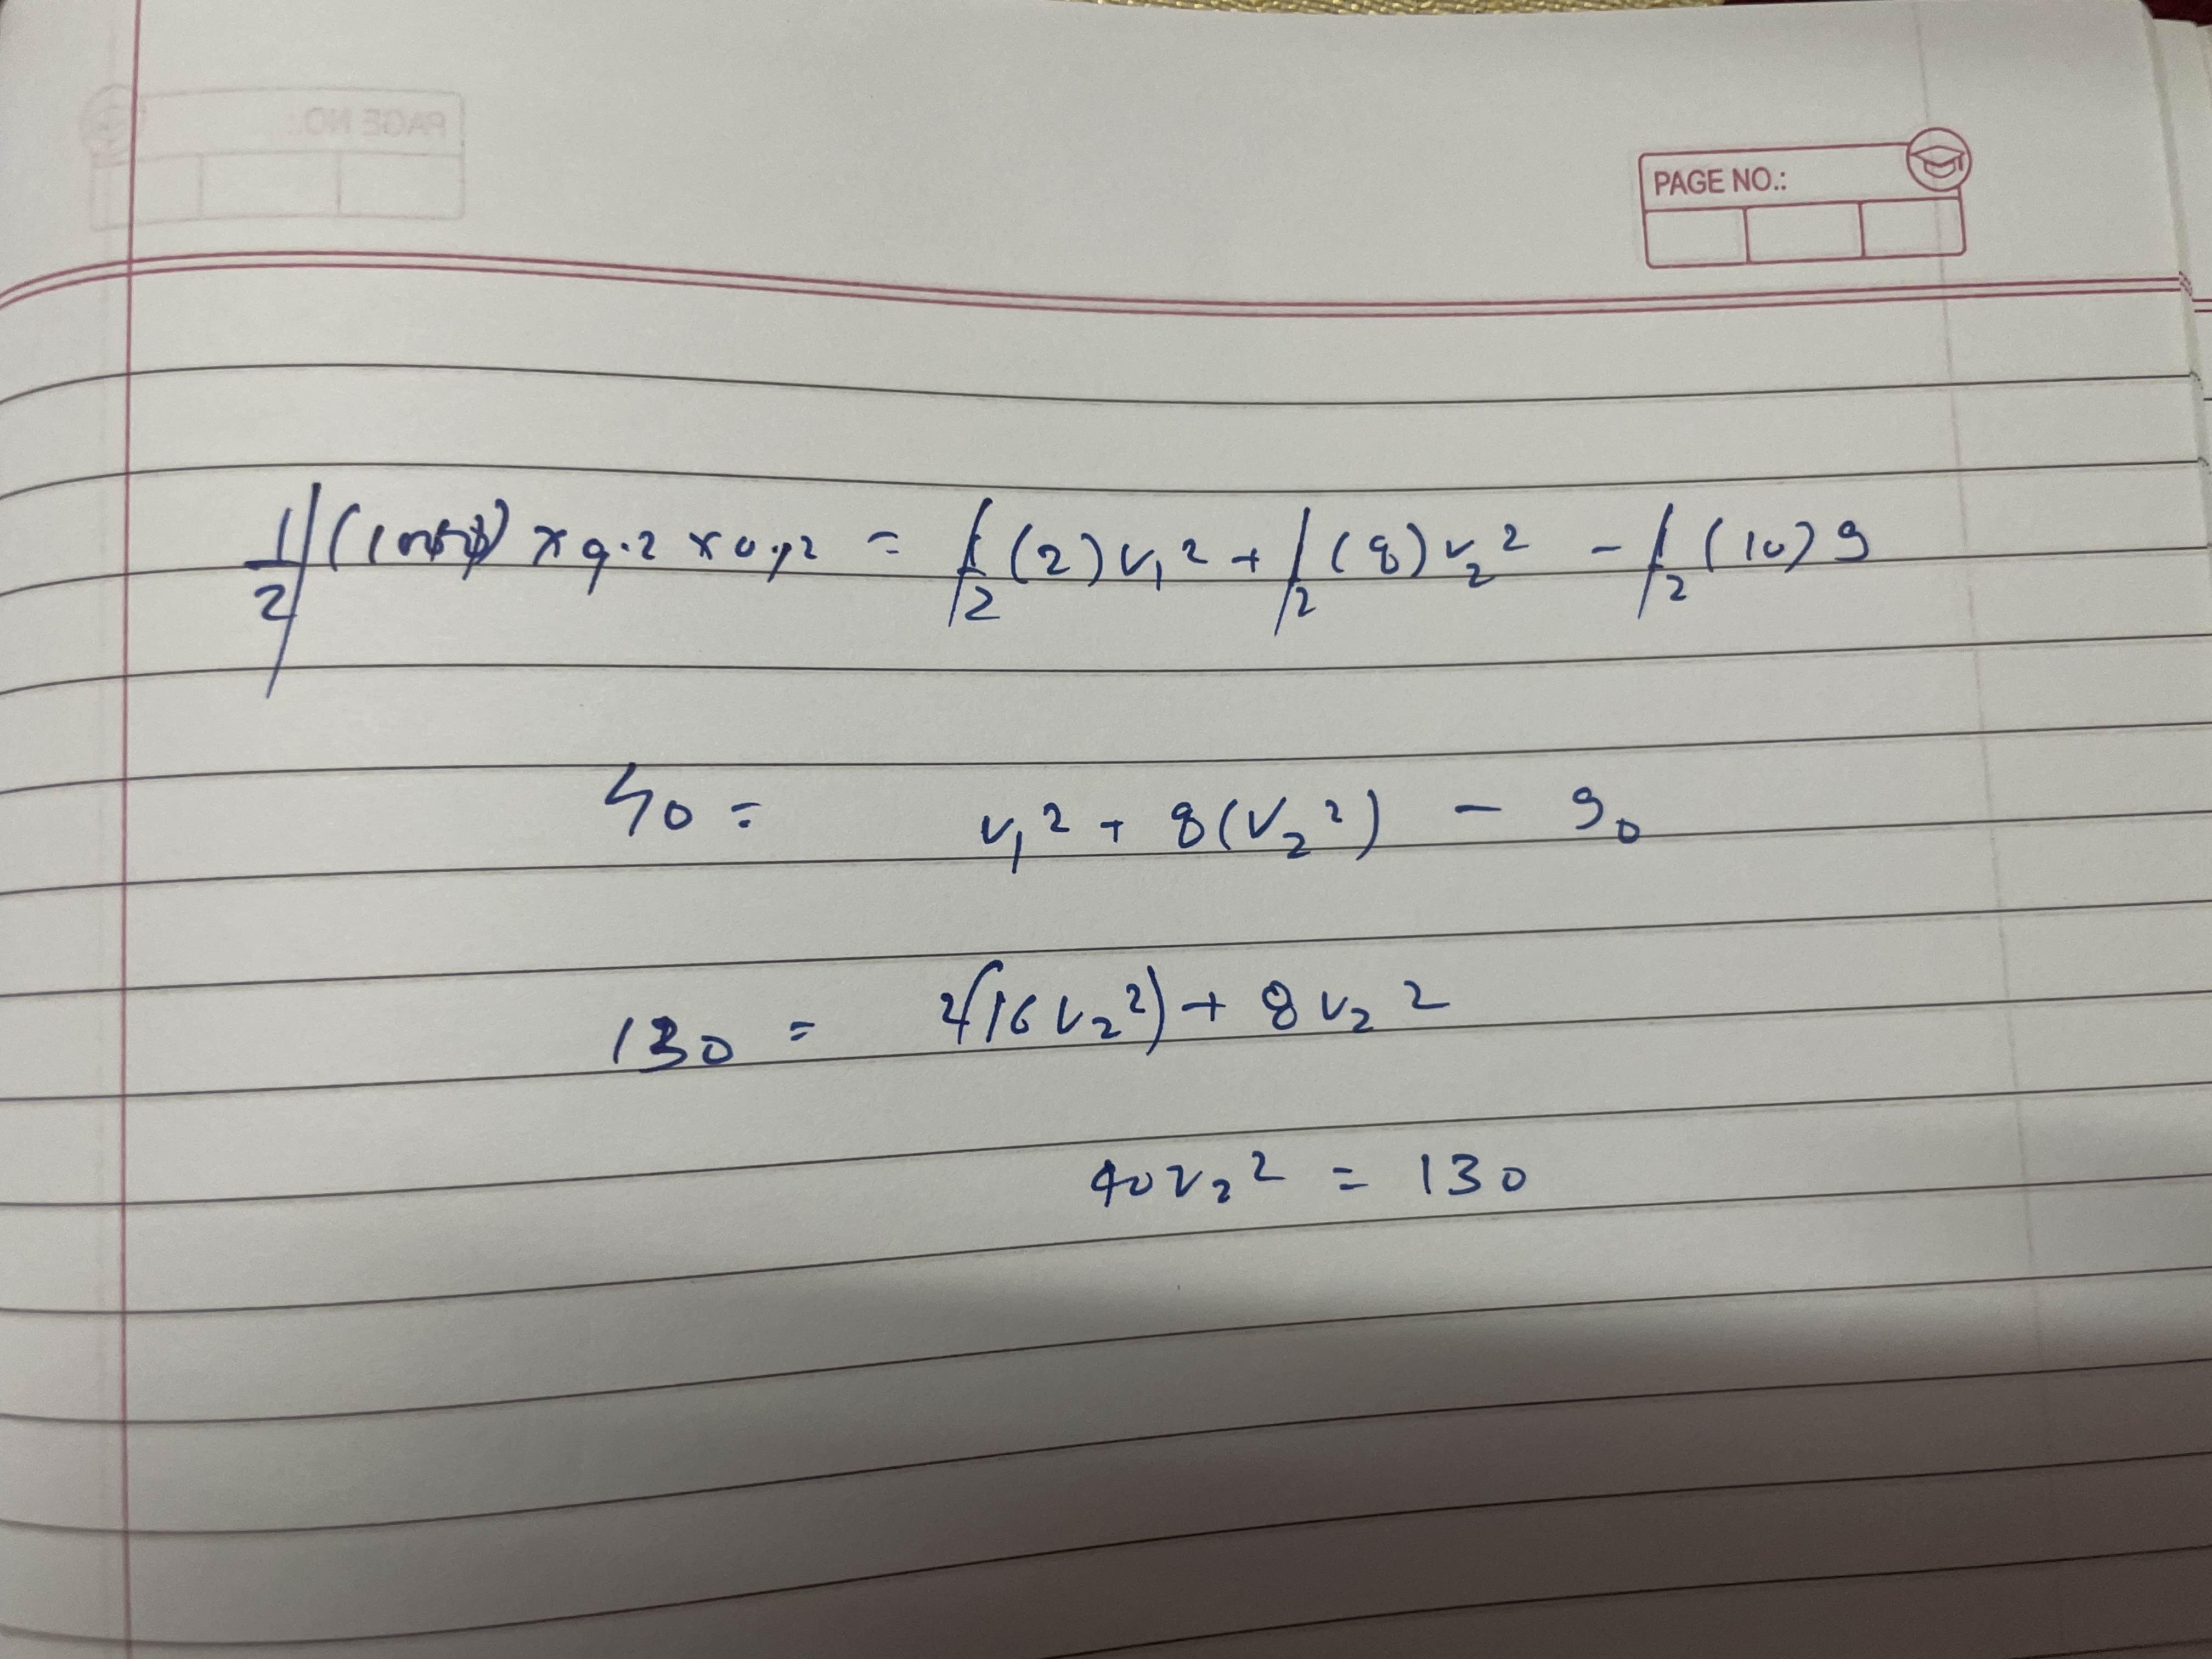 PAGE NO.:
PAGE NO.:
1/2 × 0.2 × 0.2 = 1/2 (2) v₁² + 1/2 (8) v₂² - 1/2 (10) 9
40 = v₁² + 8(v₂²) - 90
130 = 2(16v₂²) + 8v₂²
40v₂² = 130